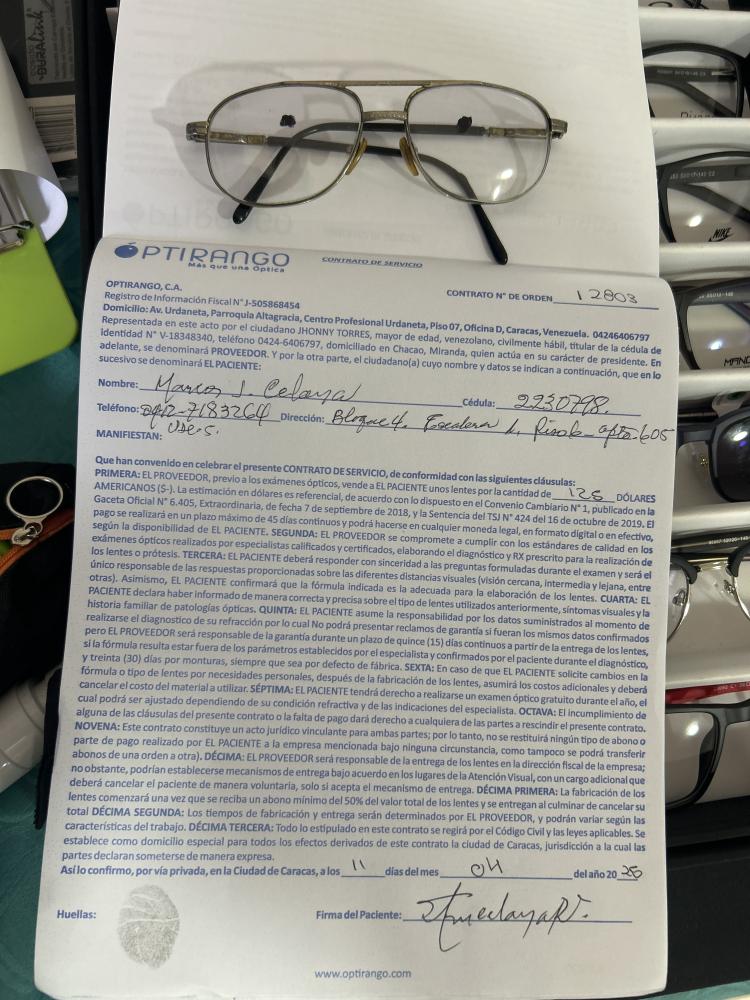 DURAlink
OPTIRANGO
Más que una Óptica
CONTRATO DE SERVICIO
CONTRATO N° DE ORDEN 12803
OPTIRANGO, C.A.
Registro de Información Fiscal N° J-505868454
Domicilio: Av. Urdaneta, Parroquia Altagracia, Centro Profesional Urdaneta, Piso 07, Oficina D, Caracas, Venezuela. 04246406797
Representada en este acto por el ciudadano JHONNY TORRES, mayor de edad, venezolano, civilmente hábil, titular de la cédula de
identidad N° V-18348340, teléfono 0424-6406797, domiciliado en Chacao, Miranda, quien actúa en su carácter de presidente. En
adelante, se denominará PROVEEDOR. Y por la otra parte, el ciudadano(a) cuyo nombre y datos se indican a continuación, que en lo
sucesivo se denominará EL PACIENTE:
Nombre: Marcos J. Celaya Cédula: 2230798.
Teléfono: 0412-7183264 Dirección: Bloque 4. Escalera 1. Piso 6 - apto. 605
UDE-5.
MANIFIESTAN:
Que han convenido en celebrar el presente CONTRATO DE SERVICIO, de conformidad con las siguientes cláusulas:
PRIMERA: EL PROVEEDOR, previo a los exámenes ópticos, vende a EL PACIENTE unos lentes por la cantidad de 125 DÓLARES
AMERICANOS ($-). La estimación en dólares es referencial, de acuerdo con lo dispuesto en el Convenio Cambiario N° 1, publicado en la
Gaceta Oficial N° 6.405, Extraordinaria, de fecha 7 de septiembre de 2018, y la Sentencia del TSJ N° 424 del 16 de octubre de 2019. El
pago se realizará en un plazo máximo de 45 días continuos y podrá hacerse en cualquier moneda legal, en formato digital o en efectivo,
según la disponibilidad de EL PACIENTE. SEGUNDA: EL PROVEEDOR se compromete a cumplir con los estándares de calidad en los
exámenes ópticos realizados por especialistas calificados y certificados, elaborando el diagnóstico y RX prescrito para la realización de
los lentes o prótesis. TERCERA: EL PACIENTE deberá responder con sinceridad a las preguntas formuladas durante el examen y será el
único responsable de las respuestas proporcionadas sobre las diferentes distancias visuales (visión cercana, intermedia y lejana, entre
otras). Asimismo, EL PACIENTE confirmará que la fórmula indicada es la adecuada para la elaboración de los lentes. CUARTA: EL
PACIENTE declara haber informado de manera correcta y precisa sobre el tipo de lentes utilizados anteriormente, síntomas visuales y la
historia familiar de patologías ópticas. QUINTA: EL PACIENTE asume la responsabilidad por los datos suministrados al momento de
realizarse el diagnostico de su refracción por lo cual No podrá presentar reclamos de garantía si fueran los mismos datos confirmados
pero EL PROVEEDOR será responsable de la garantía durante un plazo de quince (15) días continuos a partir de la entrega de los lentes,
si la fórmula resulta estar fuera de los parámetros establecidos por el especialista y confirmados por el paciente durante el diagnóstico,
y treinta (30) días por monturas, siempre que sea por defecto de fábrica. SEXTA: En caso de que EL PACIENTE solicite cambios en la
fórmula o tipo de lentes por necesidades personales, después de la fabricación de los lentes, asumirá los costos adicionales y deberá
cancelar el costo del material a utilizar. SÉPTIMA: EL PACIENTE tendrá derecho a realizarse un examen óptico gratuito durante el año, el
cual podrá ser ajustado dependiendo de su condición refractiva y de las indicaciones del especialista. OCTAVA: El incumplimiento de
alguna de las cláusulas del presente contrato o la falta de pago dará derecho a cualquiera de las partes a rescindir el presente contrato.
NOVENA: Este contrato constituye un acto jurídico vinculante para ambas partes; por lo tanto, no se restituirá ningún tipo de abono o
parte de pago realizado por EL PACIENTE a la empresa mencionada bajo ninguna circunstancia, como tampoco se podrá transferir
abonos de una orden a otra). DÉCIMA: EL PROVEEDOR será responsable de la entrega de los lentes en la dirección fiscal de la empresa;
no obstante, podrían establecerse mecanismos de entrega bajo acuerdo en los lugares de la Atención Visual, con un cargo adicional que
deberá cancelar el paciente de manera voluntaria, solo si acepta el mecanismo de entrega. DÉCIMA PRIMERA: La fabricación de los
lentes comenzará una vez que se reciba un abono mínimo del 50% del valor total de los lentes y se entregan al culminar de cancelar su
total DÉCIMA SEGUNDA: Los tiempos de fabricación y entrega serán determinados por EL PROVEEDOR, y podrán variar según las
características del trabajo. DÉCIMA TERCERA: Todo lo estipulado en este contrato se regirá por el Código Civil y las leyes aplicables. Se
establece como domicilio especial para todos los efectos derivados de este contrato la ciudad de Caracas, jurisdicción a la cual las
partes declaran someterse de manera expresa.
Así lo confirmo, por vía privada, en la Ciudad de Caracas, a los 11 días del mes 04 del año 2025
Huellas:
Firma del Paciente:
www.optirango.com
NIKE